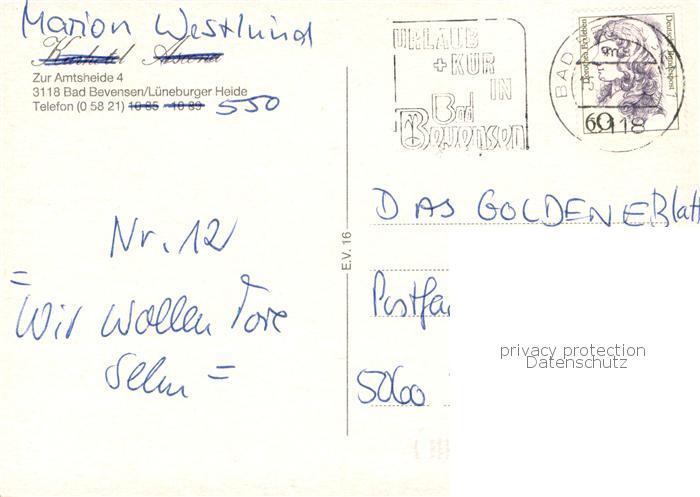 Marion Westlund
Zur Amtsheide 4
3118 Bad Bevensen/Lüneburger Heide
Telefon (0 58 21) 10 85 - 10 89 550
URLAUB
+ KUR
IN
Bad
Bevensen
BAD
3118
60
Dorothea Erxleben
Deutsche Bundespost
Nr. 12
= Wir wollen Tore
Sehn =
E.V. 16
DAS GOLDENE Blatt
Postfa
5060
privacy protection
Datenschutz